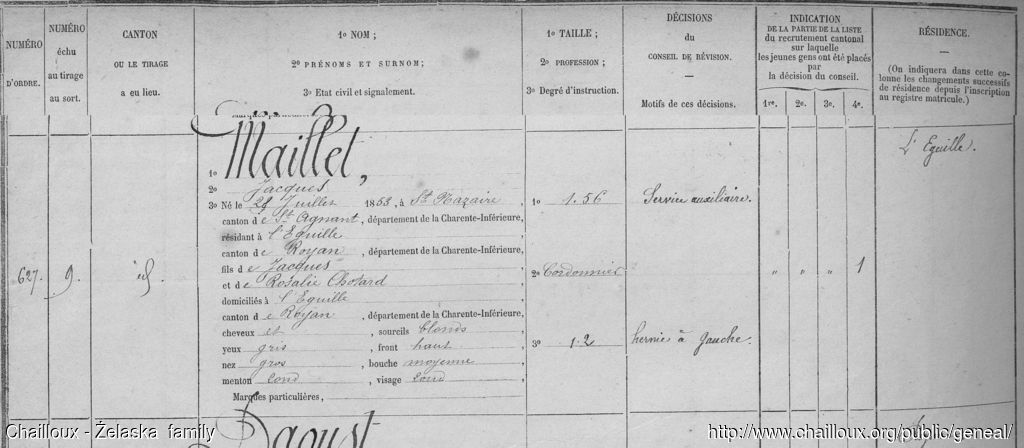 NUMÉRO D'ORDRE.
NUMÉRO échu au tirage au sort.
CANTON OU LE TIRAGE a eu lieu.
1º NOM ;
2º PRÉNOMS ET SURNOM ;
3º Etat civil et signalement.
1º TAILLE ;
2º PROFESSION ;
3º Degré d'instruction.
DÉCISIONS du CONSEIL DE RÉVISION.
—
Motifs de ces décisions.
INDICATION DE LA PARTIE DE LA LISTE du recrutement cantonal sur laquelle les jeunes gens ont été placés par la décision du conseil.
1re. 2e. 3e. 4e.
RÉSIDENCE.
—
(On indiquera dans cette colonne les changements successifs de résidence depuis l'inscription au registre matricule.)
627. 9. id.
1º Maillet,
2º Jacques
3º Né le Juillet 1853, à St Nazaire,
canton de St Agnant, département de la Charente-Inférieure,
résidant à l'Eguille,
canton de Royan, département de la Charente-Inférieure,
fils de Jacques
et de Rosalie Chotard
domiciliés à l'Eguille
canton de Royan, département de la Charente-Inférieure,
cheveux et, sourcils blonds,
yeux gris, front haut,
nez gros, bouche moyenne,
menton rond, visage rond,
Marques particulières,
1º 1.56
2º Cordonnier
3º 1.2
Service auxiliaire.
hernie à gauche.
" " " 1
L'Eguille.
Daoust
Chailloux - Želaska family
http://www.chailloux.org/public/geneal/